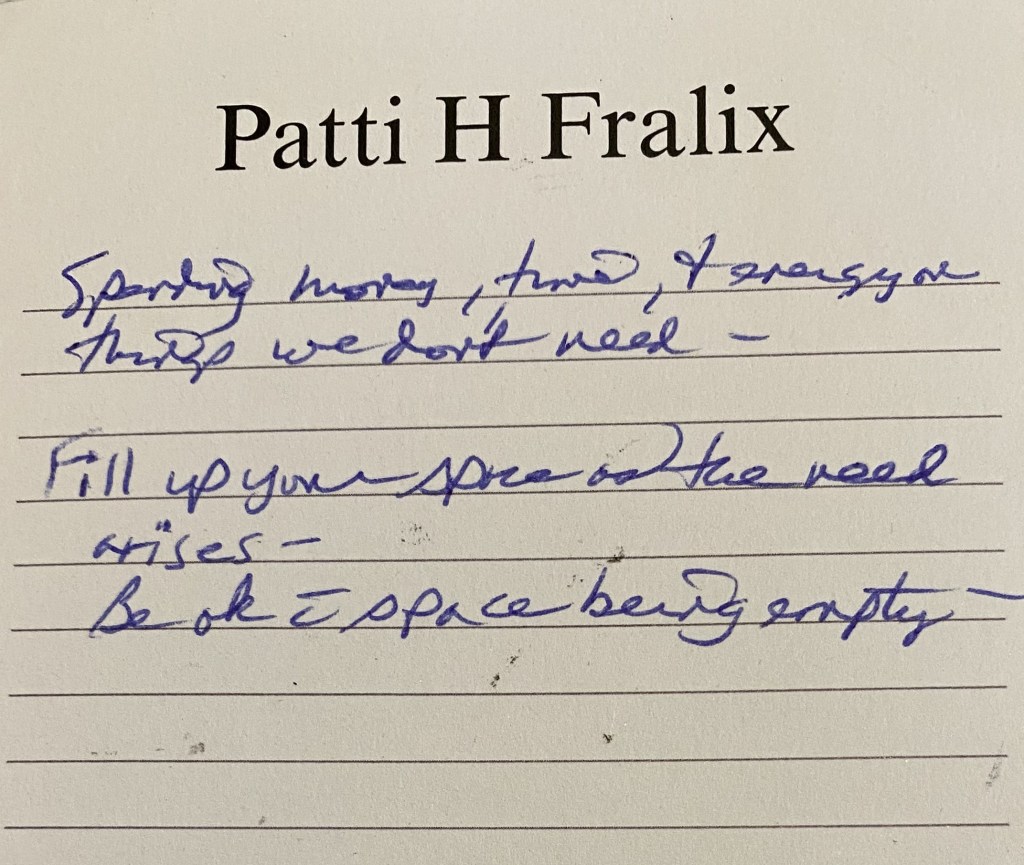 Patti H Fralix
Spending money, time, & energy on
things we don't need -
Fill up your space as the need
arises -
Be ok c̄ space being empty -